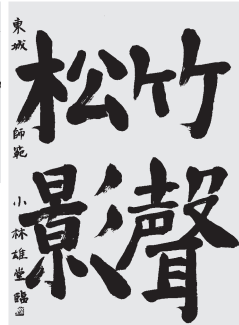 竹聲
松影
東城 師範 小林雄堂臨